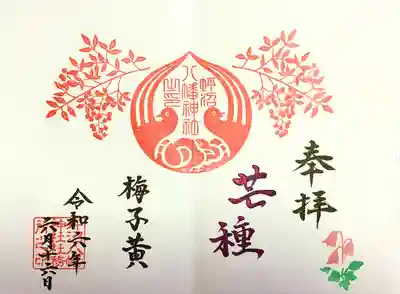 奉拝
芒種
八幡神社
之印
梅子黄
令和六年
六月十六日